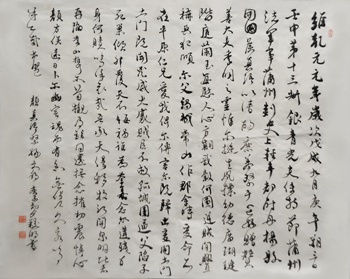 維乾元元年歲次戊戌九月庚午朔三日
壬申第十三叔銀青光夫使持節蒲州
諸軍事蒲州刺史上輕車都尉丹楊縣開
國侯真卿以清酌庶羞祭于亡姪贈贊
善大夫季明之靈惟爾挺生夙標幼德宗廟瑚
璉階庭蘭玉每慰人心方期戩穀何圖逆賊間釁
稱兵犯順爾父竭誠常山作郡余時受命亦
在平原仁兄愛我俾爾傳言爾既歸止爰開土門
土門既開凶威大蹙賊臣不救孤城圍逼父陷子
死巢傾卵覆天不悔禍誰為荼毒念爾遘殘百
身何贖嗚呼哀哉吾承天澤移牧河關泉明比者
再陷常山攜爾首櫬及茲同還撫念摧切震悼心
顏方俟遠日卜爾幽宅魂而有知無嗟久客嗚呼
哀哉尚饗 顏真卿祭姪文稿